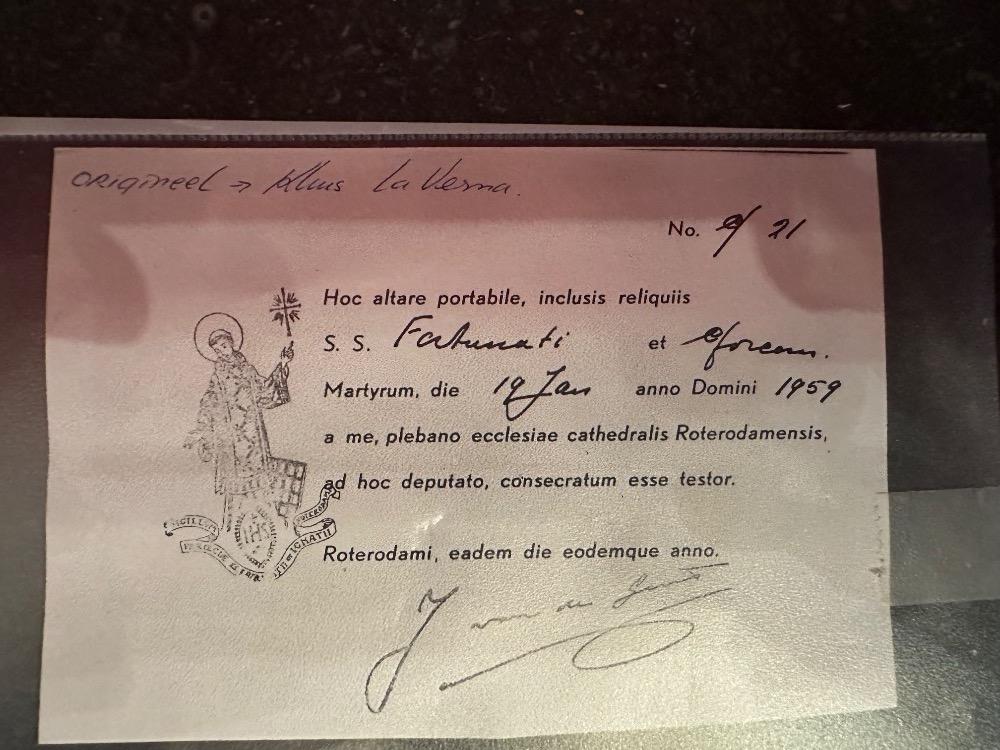 ORIGINEEL → Kluis La Verna.
No. 9/21
Hoc altare portabile, inclusis reliquiis
S. S. Fortunati et
Martyrum, die 19 Jan anno Domini 1959
a me, plebano ecclesiae cathedralis Roterodamensis,
ad hoc deputato, consecratum esse testor.
IHS
SIGILLUM
IGNATII
Roterodami, eadem die eodemque anno.
J van de